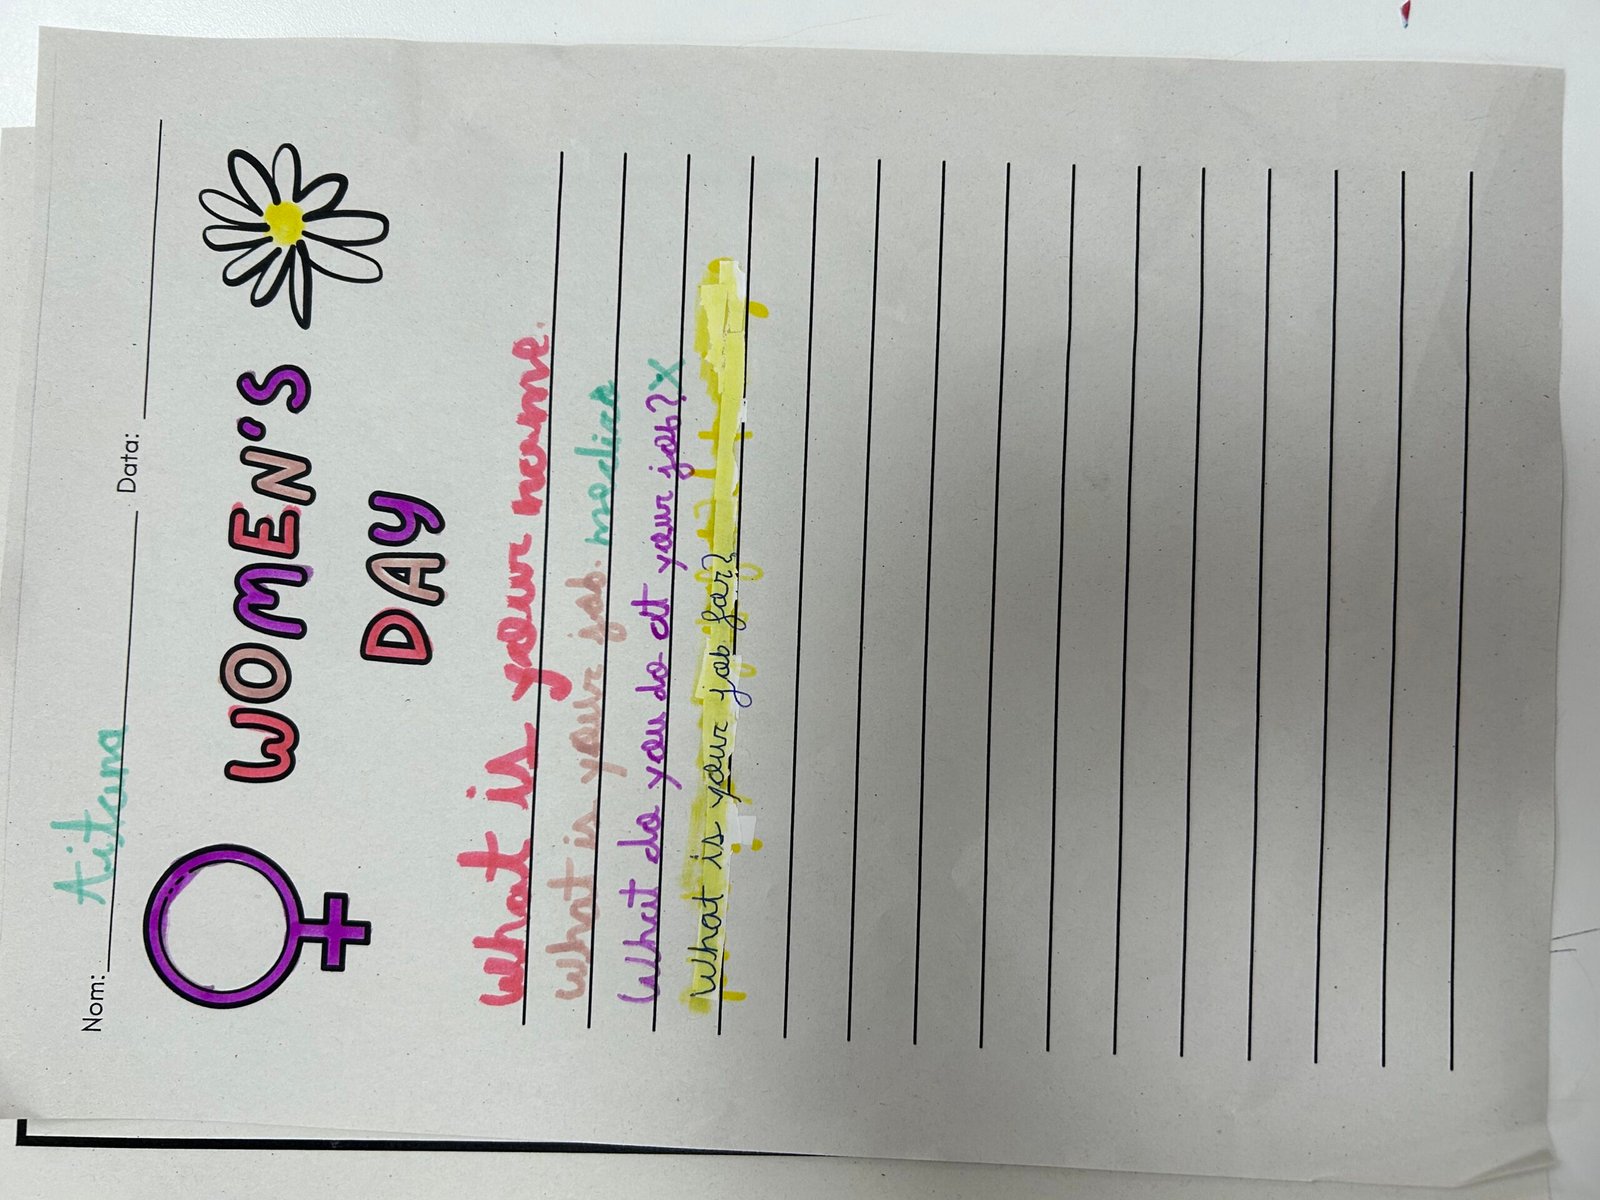 Nom: Aitana Data:
WOMEN'S
DAY
What is your name.
What is your job. medica
What do you do at your job? X
What is your job for?